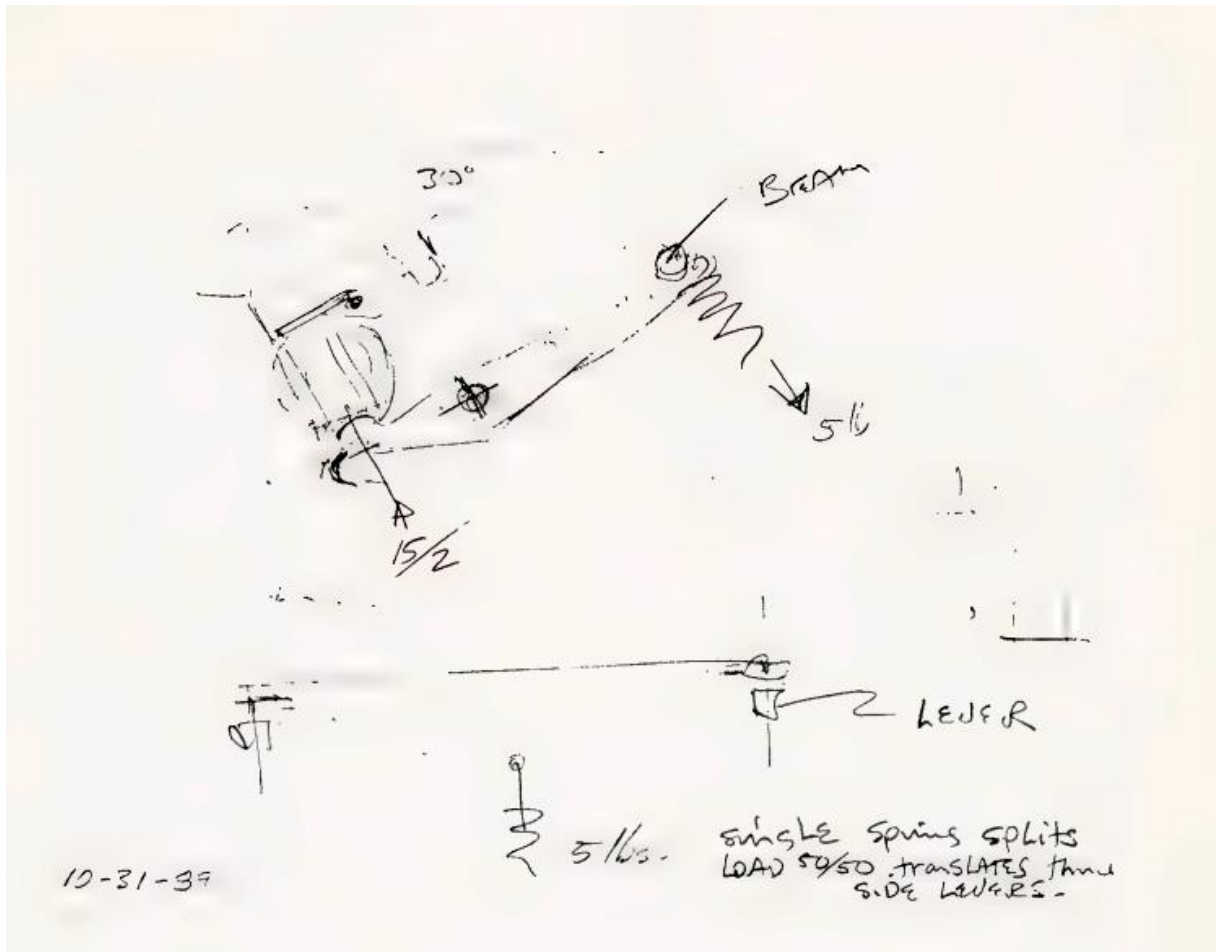 30°
BEAM
5 lb
15/2
LEVER
5 lbs.
single spring splits
LOAD 50/50 translates thru
SIDE LEVERS.